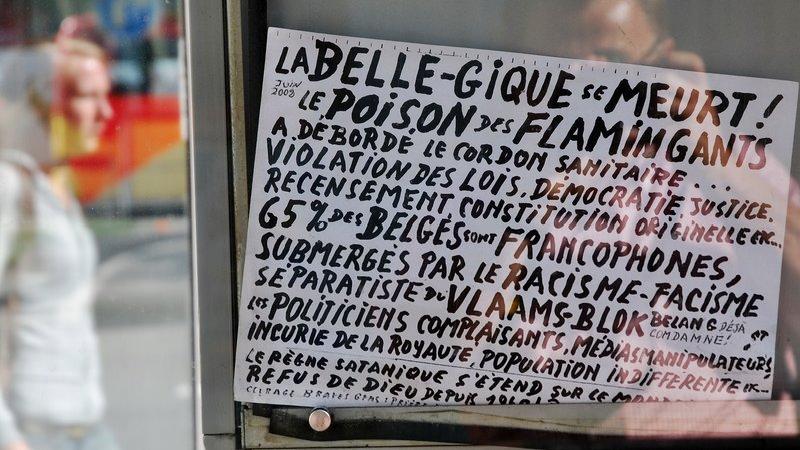 LA BELLE-GIQUE SE MEURT!
JUIN
2008
LE POISON DES FLAMINGANTS
A DÉBORDÉ LE CORDON SANITAIRE...
VIOLATION DES LOIS, DÉMOCRATIE, JUSTICE.
RECENSEMENT, CONSTITUTION ORIGINELLE ETC...
65% DES BELGES SONT FRANCOPHONES,
SUBMERGÉS PAR LE RACISME-FACISME
SÉPARATISTE DU VLAAMS-BLOK BELANG DÉJÀ
CONDAMNÉ! ET
LES POLITICIENS COMPLAISANTS, MÉDIAS MANIPULATEURS
INCURIE DE LA ROYAUTÉ, POPULATION INDIFFÉRENTE ETC...
LE RÈGNE SATANIQUE S'ÉTEND SUR LE MONDE
REFUS DE DIEU DEPUIS
COURAGE BRAVES GENS